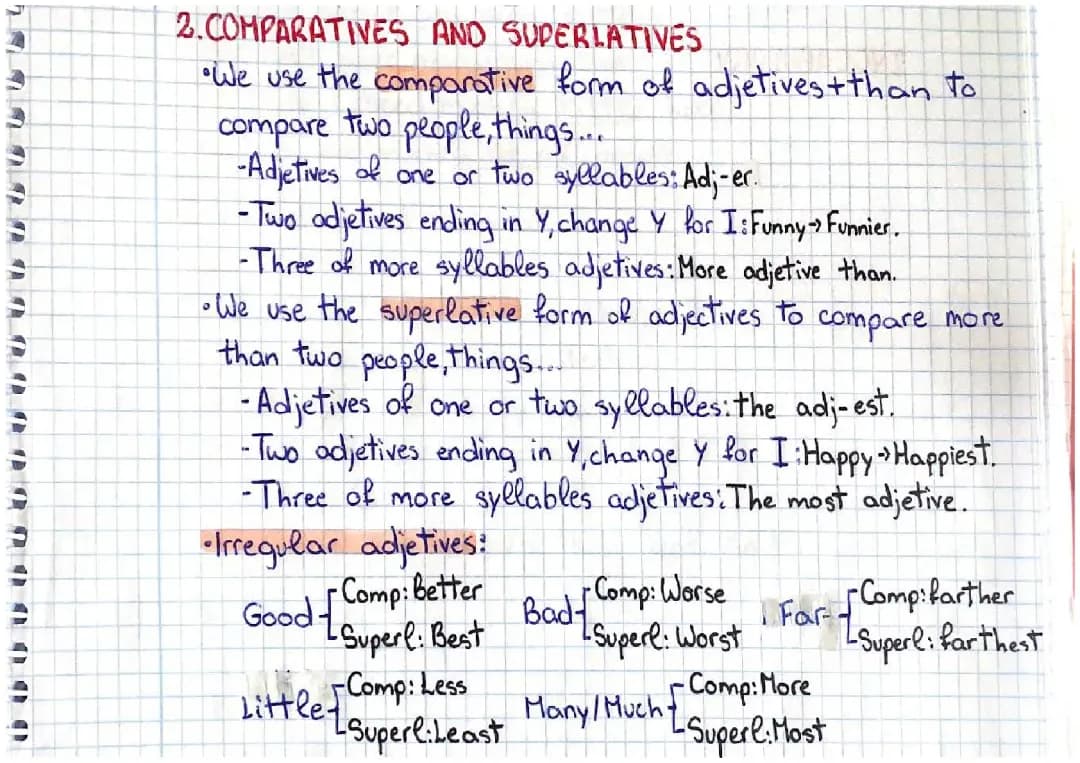 2. COMPARATIVES AND SUPERLATIVES
•We use the comparative form of adjetives+than to
compare two people, things...
-Adjetives of one or two syllables: Adj-er.
-Two adjetives ending in Y, change Y for I: Funny→Funnier.
-Three of more syllables adjetives: More adjetive than.
•We use the superlative form of adjectives to compare more
than two people, things...
-Adjetives of one or two syllables: the adj-est.
-Two adjetives ending in Y, change Y for I: Happy→Happiest.
-Three of more syllables adjetives: The most adjetive.
•Irregular adjetives:
Good Comp: Better Superl: Best
Bad Comp: Worse Superl: Worst
Far Comp: farther Superl: farthest
Little Comp: Less Superl: Least
Many/Much Comp: More Superl: Most